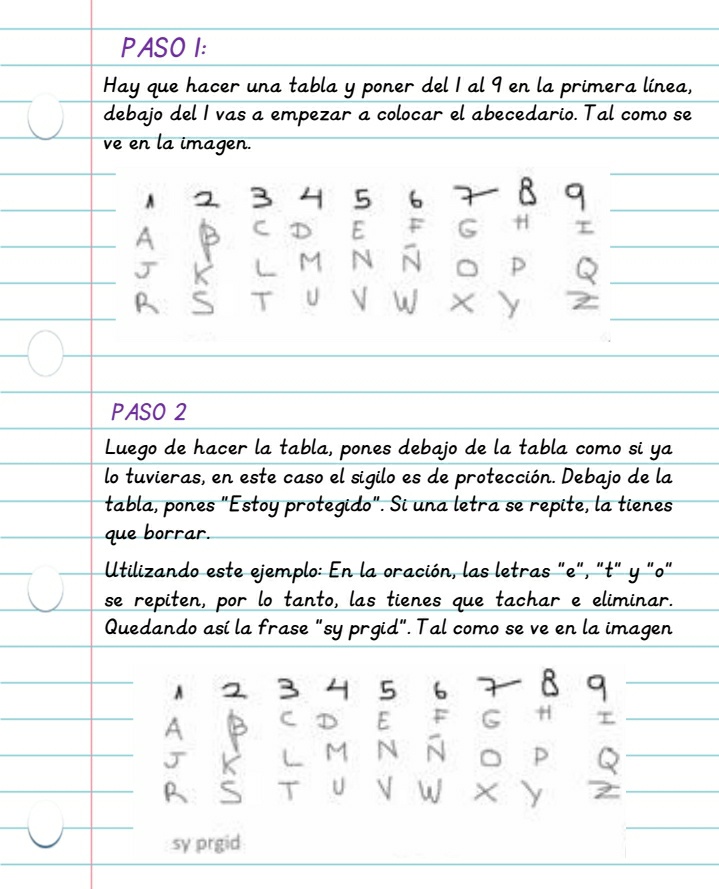 PASO 1:
Hay que hacer una tabla y poner del 1 al 9 en la primera línea,
debajo del 1 vas a empezar a colocar el abecedario. Tal como se
ve en la imagen.
1 2 3 4 5 6 7 8 9
A B C D E F G H I
J K L M N Ñ O P Q
R S T U V W X Y Z
PASO 2
Luego de hacer la tabla, pones debajo de la tabla como si ya
lo tuvieras, en este caso el sigilo es de protección. Debajo de la
tabla, pones "Estoy protegido". Si una letra se repite, la tienes
que borrar.
Utilizando este ejemplo: En la oración, las letras "e", "t" y "o"
se repiten, por lo tanto, las tienes que tachar e eliminar.
Quedando así la frase "sy prgid". Tal como se ve en la imagen
1 2 3 4 5 6 7 8 9
A B C D E F G H I
J K L M N Ñ O P Q
R S T U V W X Y Z
sy prgid